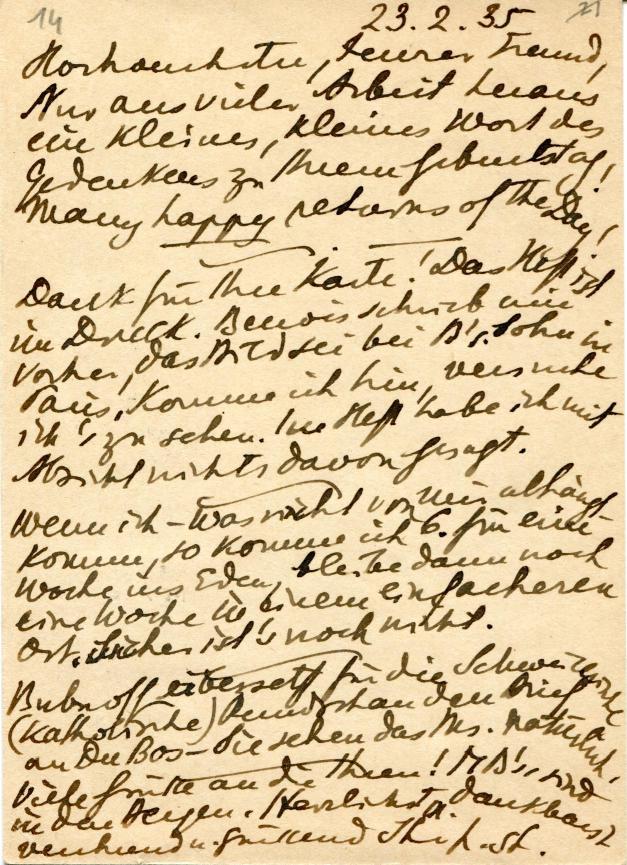 14
21
23. 2. 35
Hochverehrter, teurer Freund,
Nur aus vieler Arbeit heraus
ein kleines, kleines Wort des
Gedenkens zu Ihrem Geburtstag!
Many happy returns of the Day!
Dank für Ihre Karte! Das Heft ist
im Druck. schrieb mir
vorher, das Bild sei bei B's. Sohn in
Paris. Komme ich hin, versuche
ich's zu sehen. Im Heft habe ich mit
Absicht nichts davon gesagt.
Wenn ich – was nicht von mir abhängt
komme, so komme ich 6. für eine
Woche ins Eden, bleibe dann noch
eine Woche in einem einfacheren
Ort. Sicher ist's noch nicht.
Bubnoff übersetzt für die Schweizerische
(Katholische) Rundschau den Brief
an Du Bos – Sie sehen das Ms. natürlich.
Viele Grüße an die Ihren! sind
in den Bergen. Herzlichst, dankbarst
verehrend u. grüssend Ihr